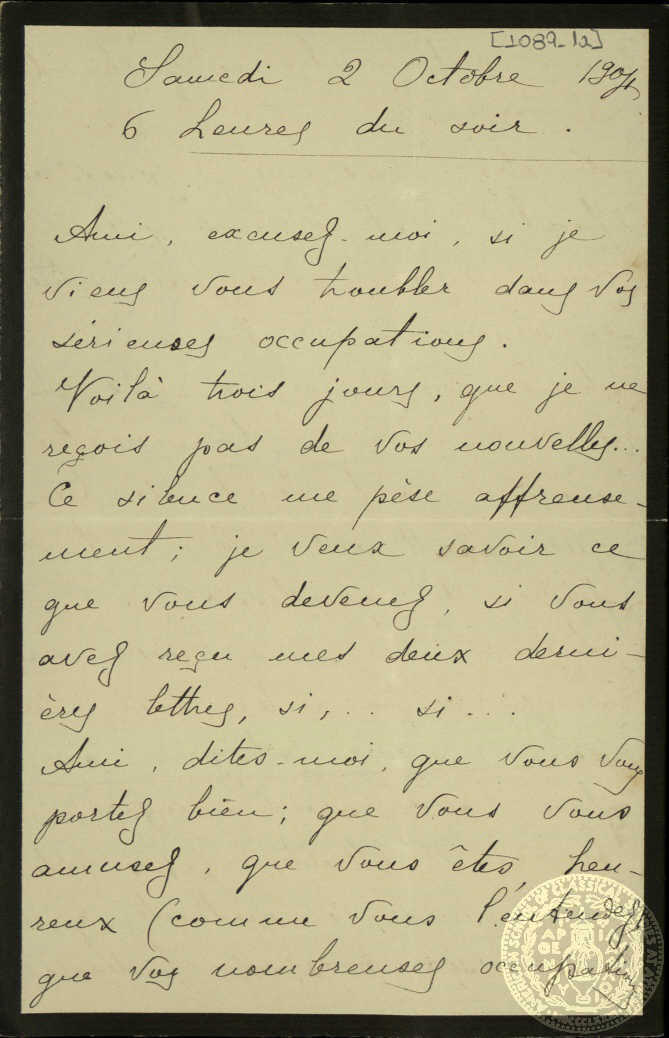 [1089_1a]
Samedi 2 Octobre 1904
6 heures du soir.
Ami, excusez-moi, si je
viens vous troubler dans vos
sérieuses occupations.
Voilà trois jours, que je ne
reçois pas de vos nouvelles...
Ce silence me pèse affreuse-
ment; je veux savoir ce
que vous devenez, si vous
avez reçu mes deux derni-
ères lettres, si,... si...
Ami, dites-moi, que vous vous
portez bien; que vous vous
amusez, que vous êtes, heu-
reux (comme vous l'entendez)
que vos nombreuses occupations